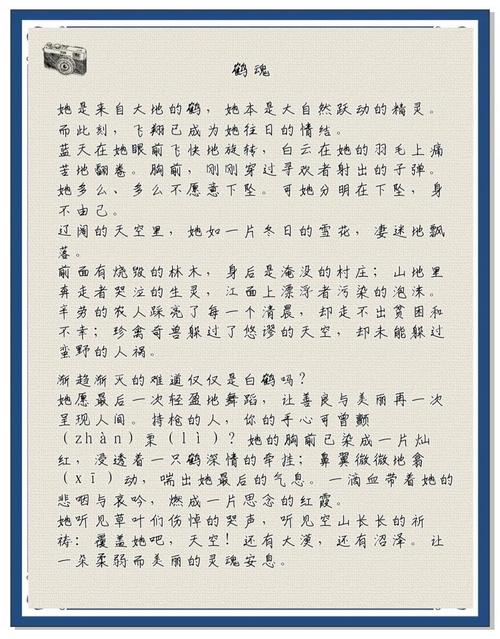 鹤魂
她是来自大地的鹤，她本是大自然跃动的精灵。
而此刻，飞翔已成为她往日的情结。
蓝天在她眼前飞快地旋转，白云在她的羽毛上痛
苦地翻卷。胸前，刚刚穿过寻欢者射出的子弹。
她多么、多么不愿意下坠。可她分明在下坠，身
不由己。
辽阔的天空里，她如一片冬日的雪花，凄迷地飘
落。
前面有烧毁的林木，身后是淹没的村庄；山地里
奔走着哭泣的生灵，江面上漂浮着污染的泡沫。
辛劳的农人踩亮了每一个清晨，却走不出贫困和
不幸；珍禽奇兽躲过了悠谬的天空，却未能躲过
蛮野的人祸。
渐趋渐灭的难道仅仅是白鹤吗？
她愿最后一次轻盈地舞蹈，让善良与美丽再一次
呈现人间。持枪的人，你的手心可曾颤
（zhàn）栗（lì）？她的胸前已染成一片灿
红，浸透着一只鹤深情的牵挂；鼻翼微微地翕
（xī）动，喘出她最后的气息。一滴血带着她的
悲咽与哀吟，燃成一片思念的红霞。
她听见草叶们伤悼的哭声，听见空山长长的祈
祷：覆盖她吧，天空！还有大漠，还有沼泽。让
一朵柔弱而美丽的灵魂安息。